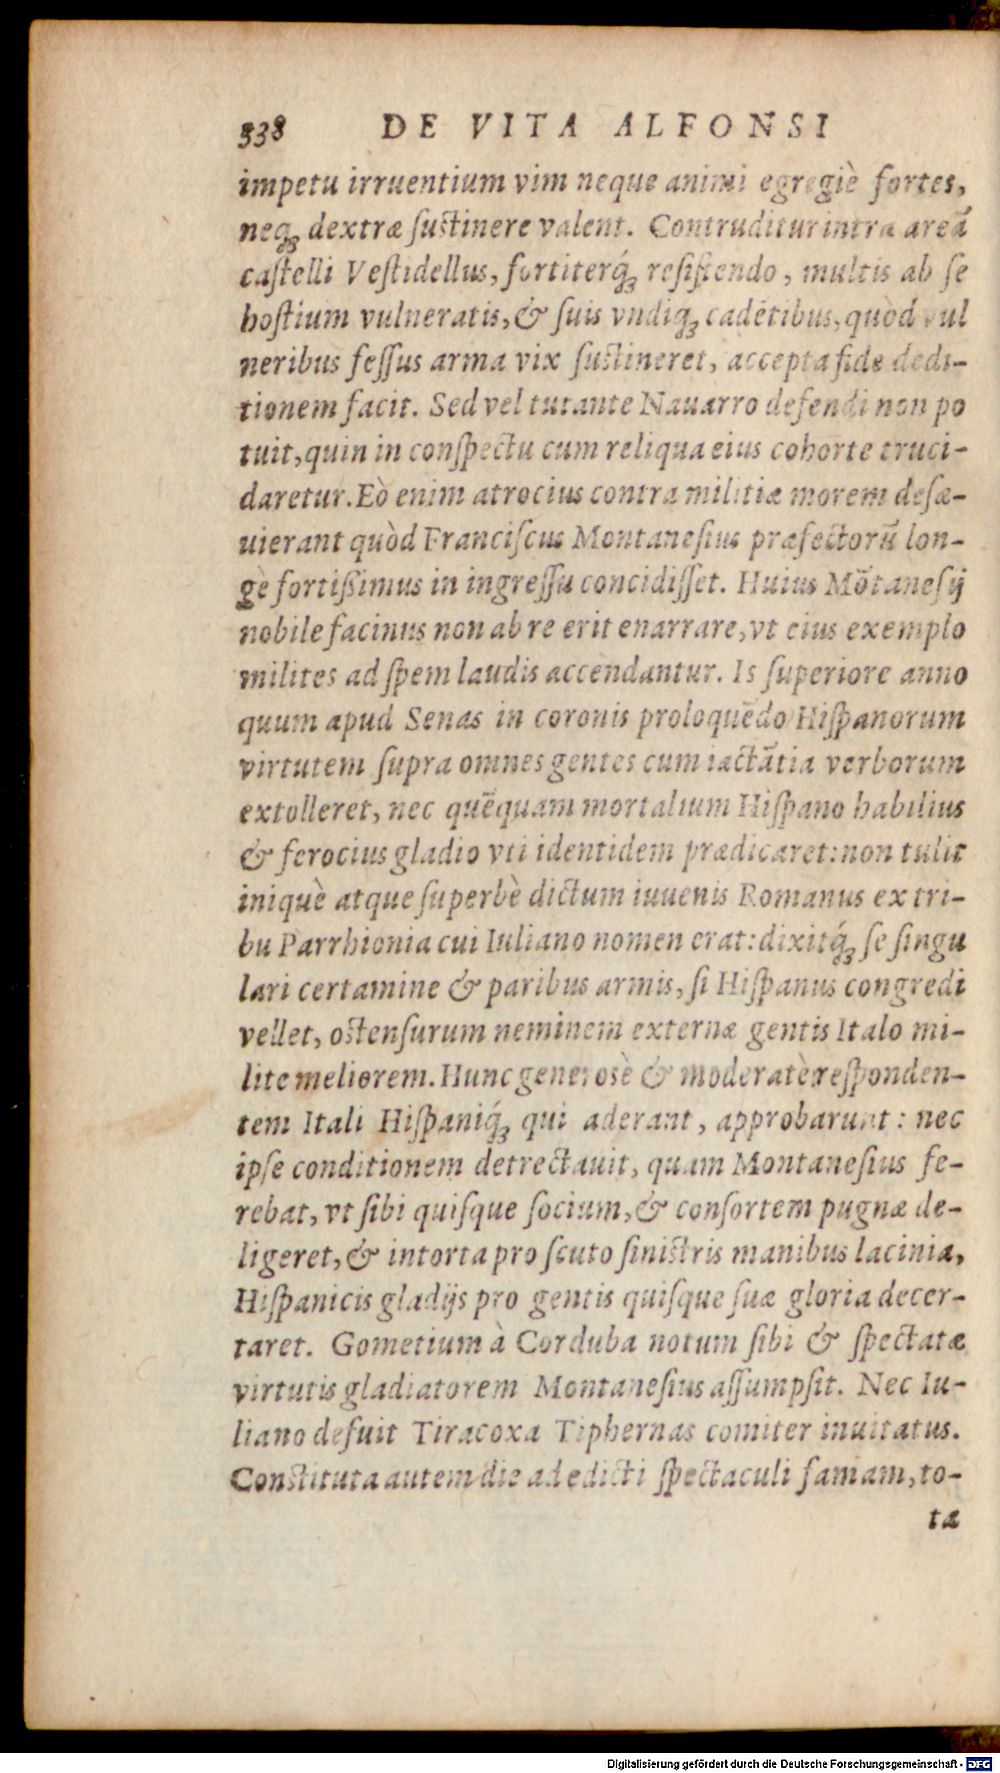 338 DE VITA ALFONSI
impetu irruentium vim neque animi egregiè fortes,
neqꝫ dextræ ſuſtinere valent. Contruditur intra areā
caſtelli Veſtidellus, fortiterq́ꝫ reſiſtendo, multis ab ſe
hoſtium vulneratis, & ſuis vndiqꝫ cadētibus, quòd vul
neribus feſſus arma vix ſuſtineret, accepta fide dedi-
tionem facit. Sed vel tutante Nauarro defendi non po
tuit, quin in conſpectu cum reliqua eius cohorte truci-
daretur. Eò enim atrocius contra militiæ morem deſæ-
uierant quòd Franciſcus Montaneſius præfectorū lon-
gè fortißimus in ingreſſu concidiſſet. Huius Mōtaneſij
nobile facinus non ab re erit enarrare, vt eius exemplo
milites ad ſpem laudis accendantur. Is ſuperiore anno
quum apud Senas in coronis proloquēdo Hiſpanorum
virtutem ſupra omnes gentes cum iactātia verborum
extolleret, nec quēquam mortalium Hiſpano habilius
& ferocius gladio vti identidem prædicaret: non tulit
iniquè atque ſuperbè dictum iuuenis Romanus ex tri-
bu Parrhionia cui Iuliano nomen erat: dixitq́ꝫ ſe ſingu
lari certamine & paribus armis, ſi Hiſpanus congredi
vellet, oſtenſurum neminem externæ gentis Italo mi-
lite meliorem. Hunc generosè & moderatè reſponden-
tem Itali Hiſpaniq́ꝫ qui aderant, approbarunt: nec
ipſe conditionem detrectauit, quam Montaneſius fe-
rebat, vt ſibi quiſque ſocium, & conſortem pugnæ de-
ligeret, & intorta pro ſcuto ſiniſtris manibus lacinia,
Hiſpanicis gladijs pro gentis quiſque ſuæ gloria decer-
taret. Gometium à Corduba notum ſibi & ſpectatæ
virtutis gladiatorem Montaneſius aſſumpſit. Nec Iu-
liano defuit Tiracoxa Tiphernas comiter inuitatus.
Conſtituta autem die ad edicti ſpectaculi famam, to-
tæ
Digitalisierung gefördert durch die Deutsche Forschungsgemeinschaft - DFG